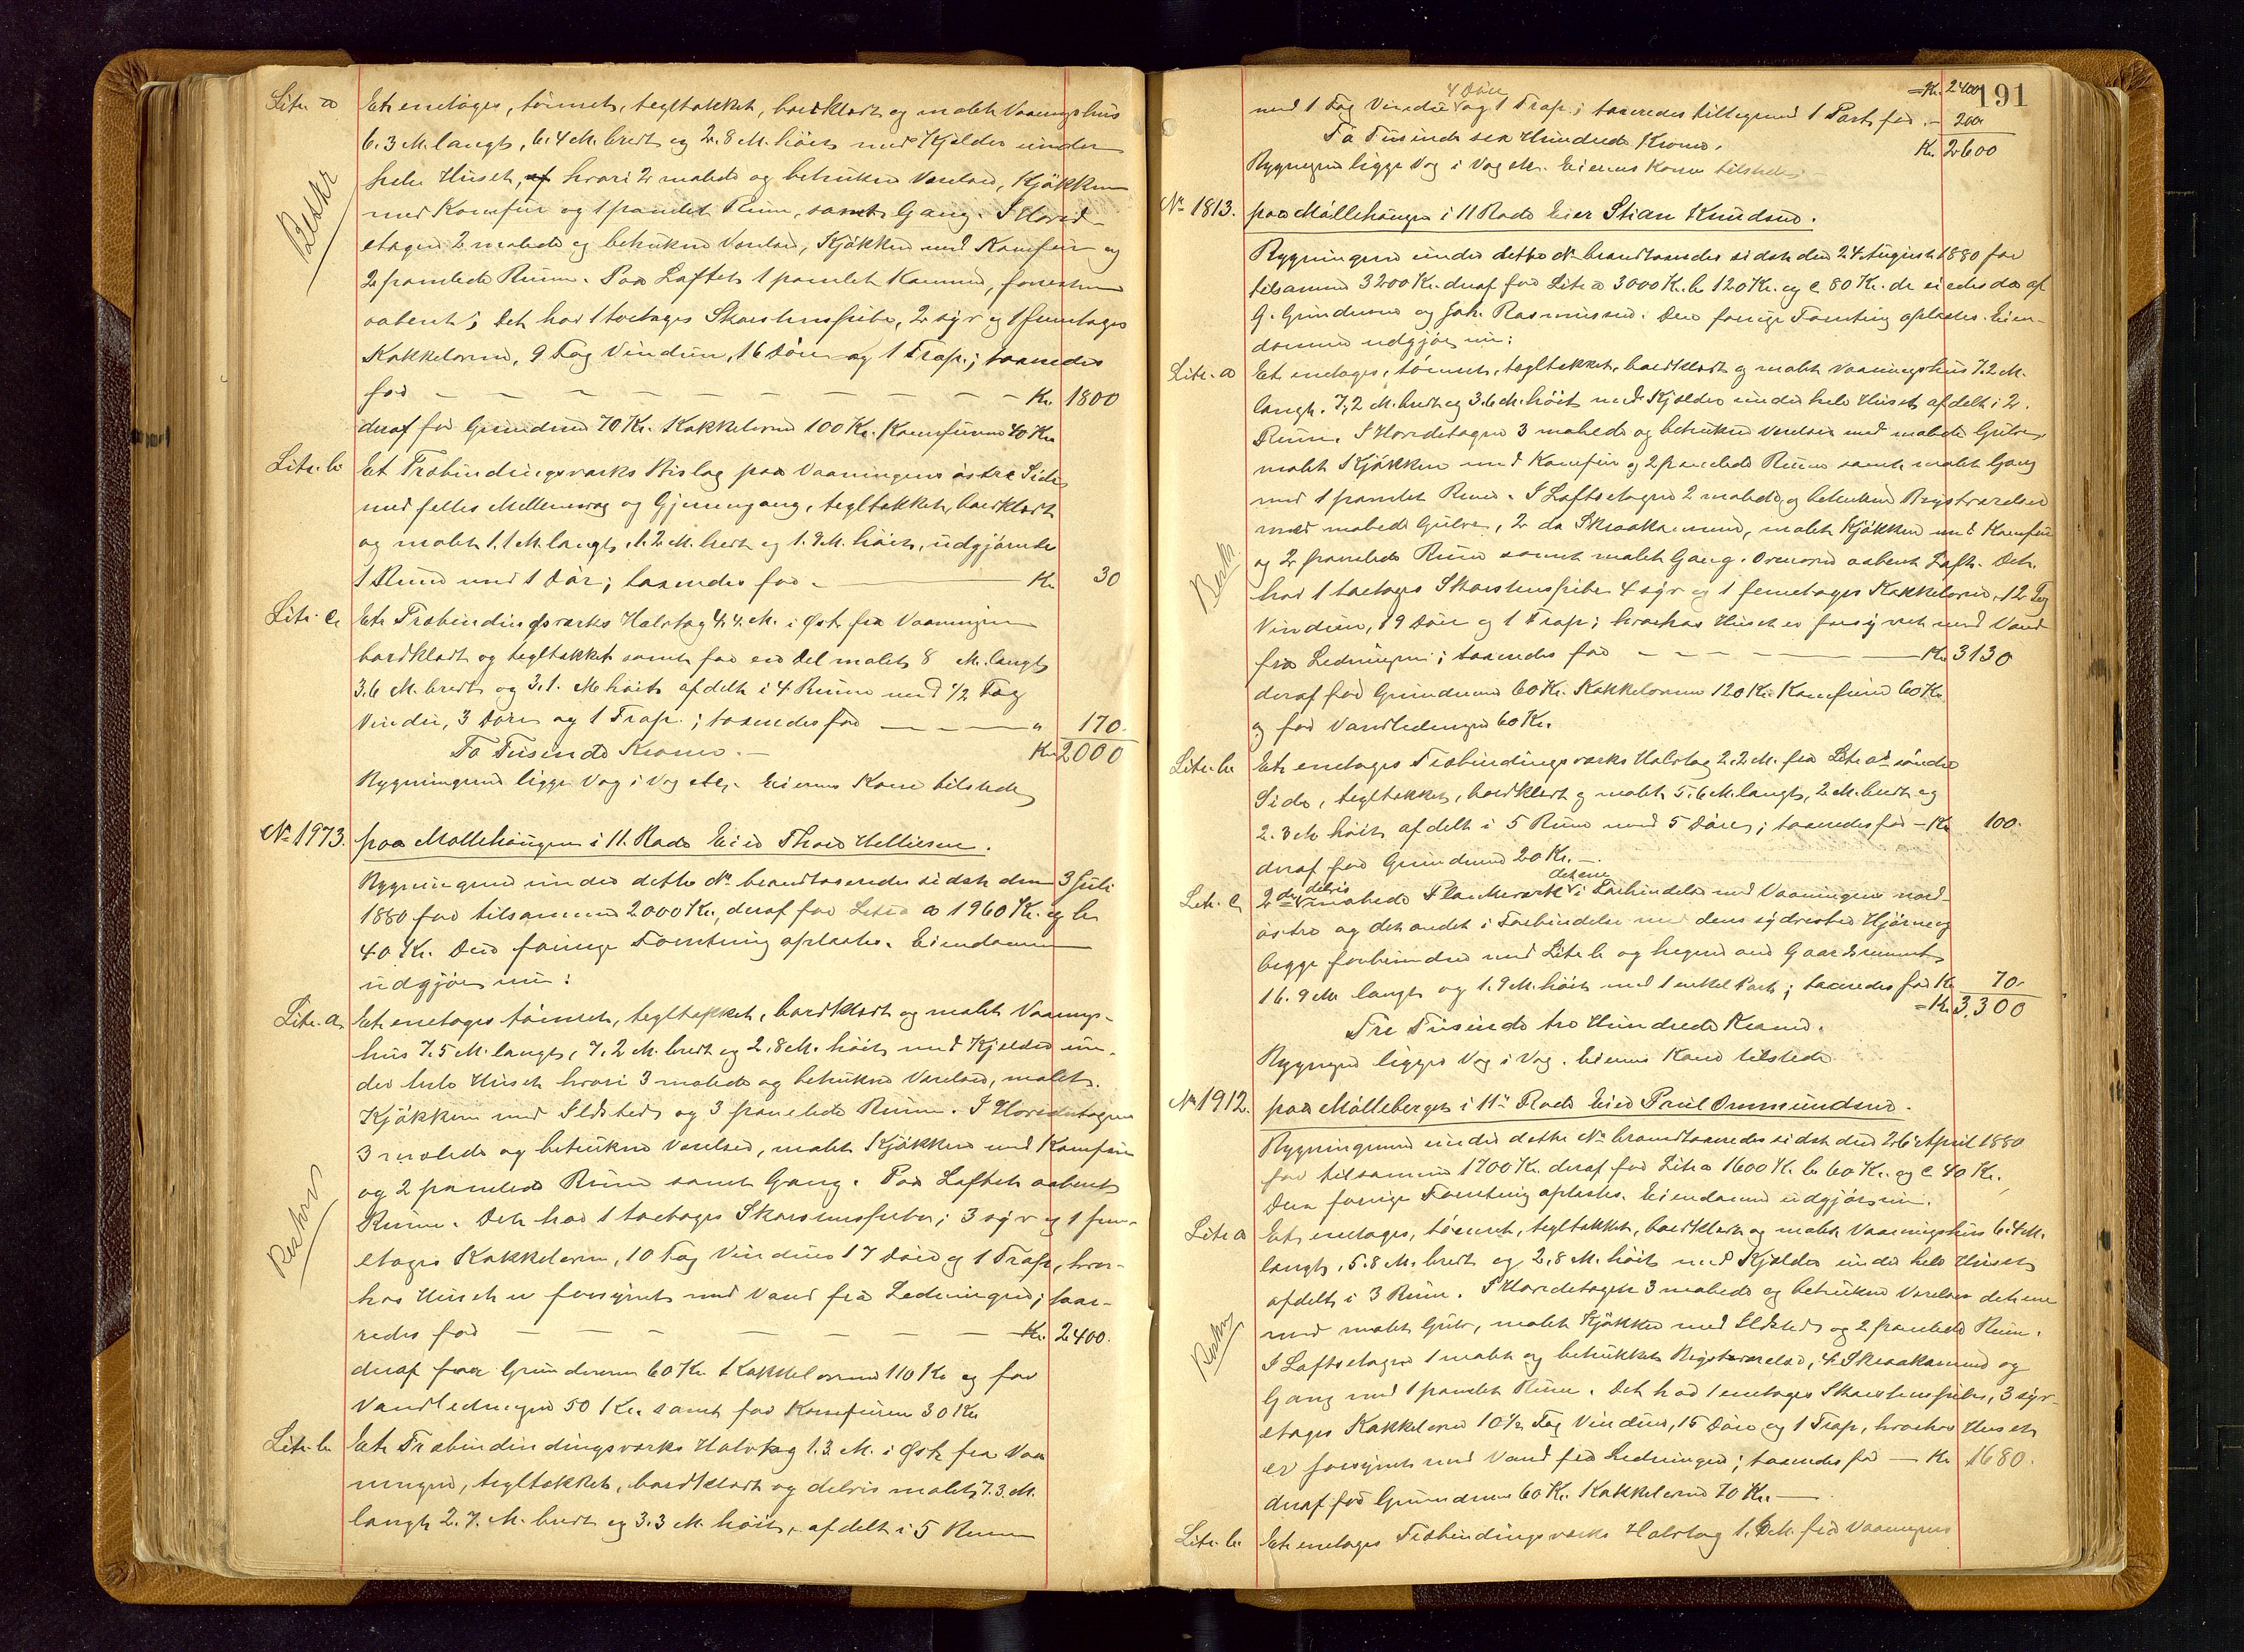 Litr a Et enetages, tömret, tegltækket, bordklædt og malet Vaaningshus
6.3 M. langt, 6.4 M. bredt og 2.8 M. höit med Kjelder under
Beskr
hele Huset, hvori 2 malede og betrukne Værelser, Kjökken
med Komfur og 1 panelet Rum, samt Gang. I Hoved-
etagen 2 malede og betrukne Værelser, Kjökken med Komfur og
2 panelede Rum. Paa Loftet 1 panelet Kammer, forresten
aabent; Det har 1 toetages Skorstenspibe, 2 syv og 1 femetages
Kakkelovne, 9 Fag Vinduer, 16 Döre og 1 Trap.; taxeredes
for — — — — — — — — — Kr. 1800
deraf for Grunden 70 Kr. Kakkelovne 100 Kr. Komfurene 40 Kr.
Litr. b. Et Træbindingsværks Bislag paa Vaaningens östre Side
med fælles Mellemvæg og Gjennemgang, tegltækket, bordklædt
og malet 1.1 M. langt, 1.2 M. bredt og 1.9 M. höit, udgjörende
1 Rum med 1 Dör; taxeredes for — Kr. 30
Litr. c. Et Træbindingsværks Halvtag 4.4 M. i Øst fra Vaaningen
bordklædt og tegltækket samt for en Del malet 8 M. langt
3.6 M. bredt og 3.1 M. höit afdelt i 4 Rum med 1/2 Fag
Vindu, 3 Döre og 1 Trap.; taxeredes for — — — " 170.
To Tusinde Kroner. — Kr. 2000
Bygningerne ligger Væg i Væg etc. Eierens Kone tilstede
No 1973. paa Möllehaugen i 11. Rode Eier Thore Helliesen.
Bygningerne under dette No brandtaxeredes sidst den 3 Juli
1880 for tilsammen 2000 Kr., deraf for Litra a 1960 Kr. og b
40 Kr. Den forrige Taxering oplæstes. Eiendommen
udgjör nu:
Litr. a Et enetages tömret, tegltækket, bordklædt og malet Vaanings-
hus 7.5 M. langt, 7.2 M. bredt og 2.8 M. höit med Kjelder un-
der hele Huset hvori 3 malede og betrukne Værelser, malet
Kjökken med Ildsted og 3 panelede Rum. I Hovedetagen
3 malede og betrukne Værelser, malet Kjökken med Komfur
og 2 panelede Rum samt Gang. Paa Loftet aabent
Beskrev
Rum. Det har 1 toetages Skorstenspibe; 3 syv og 1 fem-
etages Kakkelovn, 10 Fag Vinduer 17 Döre og 1 Trap, hvor-
hos Huset er forsynet med Vand fra Ledningen; taxe-
redes for — — — — — — — Kr. 2400.
deraf for Grunden 60 Kr. Kakkelovne 110 Kr. og for
Vandledningen 50 Kr. samt for Komfuren 30 Kr
Litr. b. Et Træbindindingsværks Halvtag 1.3 M. i Øst fra Vaa
ningen, tegltækket, bordklædt og delvis malet, 7.3 M.
langt 2.7 M. bredt og 3.3 M. höit, afdelt i 5 Rum
191
= Kr. 2400
4 Döre
med 1 Fag Vindu og 1 Trap.; taxeredes tilligemed 1 Port for — 200
To Tusinde sex Hundrede Kroner. Kr. 2600
Bygningen ligger Væg i Væg etc. Eierens Kone tilstede. —
No 1813. paa Möllehaugen i 11 Rode Eier Stian Knudsen.
Bygningerne under dette No brandtaxeredes sidst den 24 August 1880 for
tilsammen 3200 Kr. deraf for Litr a 3000 Kr. b 120 Kr. og c. 80 Kr. de eiedes da af
G. Gundersen og Joh. Rasmussen. Den forrige Taxering oplæstes. Eien-
dommen udgjör nu:
Litr. a Et enetages, tömret, tegltækket, bordklædt og malet Vaaningshus 7.2 M.
langt. 7,2 M. bredt og 3.6 M. höit med Kjelder under hele Huset afdelt i 2.
Rum. I Hovedetagen 3 malede og betrukne Værelser med malede Gulve,
malet Kjökken med Komfur og 2 panelede Rum samt malet Gang
med 1 panelet Rum. I Loftsetagen 2 malede og betrukne Brystværelser
med malede Gulve, 2 do Skraakammere, malet Kjökken med Komfur
Beskr.
og 2 panelede Rum samt malet Gang. Ovenover aabent Loft. Det
har 1 toetages Skorstenspibe 4 syv og 1 femetages Kakkelovne, 12 Fag
Vinduer, 19 Döre og 1 Trap; hvorhos Huset er forsynet med Vand
fra Ledningen; taxeredes for — — — — Kr. 3130
deraf for Grunden 60 Kr. Kakkelovnene 120 Kr. Komfurene 60 Kr
og for Vandledningen 60 Kr.
Litr. b. Et enetages Træbindingsværks Halvtag 2.2 M. fra Litr a's söndre
Side, tegltækket, bordklædt og malet 5.6 M. langt, 2 M. bredt og
2.3 M. höit, afdelt i 5 Rum med 5 Döre; taxeredes for — Kr 100.
deraf for Grunden 20 Kr. —
delvis det ene
Litr. c. 2de malede Plankeværk i Forbindelse med Vaaningens nord-
östre og det andet i Forbindelse med dens sydvestre Hjörne og
begge forbundne med Litr b og hegner om Gaardsrummet
16.9 M. langt og 1.9 M. höit med 1 enkel Port; taxeredes for Kr 70.
= Kr. 3,300
Tre Tusinde tre Hundrede Kroner.
Bygningen ligger Væg i Væg. Eierens Kone tilstede
No 1912. paa Mölleberget i 11te Rode Eier Poul Ommundsen.
Bygningerne under dette No brandtaxeredes sidst den 26 April 1880
for tilsammen 1700 Kr. deraf for Litr a 1600 Kr. b 60 Kr. og c. 40 Kr.
Den forrige Taxering oplæstes. Eiendommen udgjör nu:
Litr a Et enetages, tömret, tegltækket, bordklædt og malet Vaaningshus 6.4 M.
langt, 5.8 M. bredt og 2.8 M. höit med Kjelder under hele Huset
afdelt i 3 Rum. I Hovedetagen 3 malede og betrukne Værelser det ene
Beskrev
med malet Gulv, malet Kjökken med Ildsted og 2 panelede Rum.
I Loftsetagen 1 malet og betrukket Brystværelse, 4 Skraakammere og
Gang med 1 panelet Rum. Det har 1 enetages Skorstenspibe, 3 syv-
etages Kakkelovne 10 1/2 Fag Vinduer, 15 Döre og 1 Trap, hvorhos Huset
er forsynet med Vand fra Ledningen; taxeredes for — Kr 1680.
deraf for Grunden 60 Kr. Kakkelovne 70 Kr. —
Litr. b. Et enetages Træbindingsværks Halvtag 1.6 M. fra Vaaningens